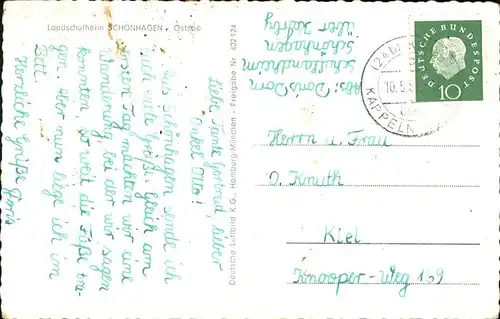 Landschulheim SCHÖNHAGEN • Ostsee
Liebe Tante Gertrud, lieber
Onkel Otto!
Aus Schönhagen sende ich
euch viele Grüße. Gleich am
ersten Tag machten wir eine
Wanderung, bei der wir sagen
konnten, so weit die Füße tra-
gen. Aber nun liege ich im
Bett.
Herzliche Grüße Doris
Deutsche Luftbild K.G., Hamburg-München • Freigabe Nr. 402124
Abs: Doris Dorn
Schullandheim
Schönhagen
über
(24b)
10.5.
KAPPELN
DEUTSCHE BUNDESPOST
10
Herrn u. Frau
O. Knuth
Kiel
Knooper-Weg 169